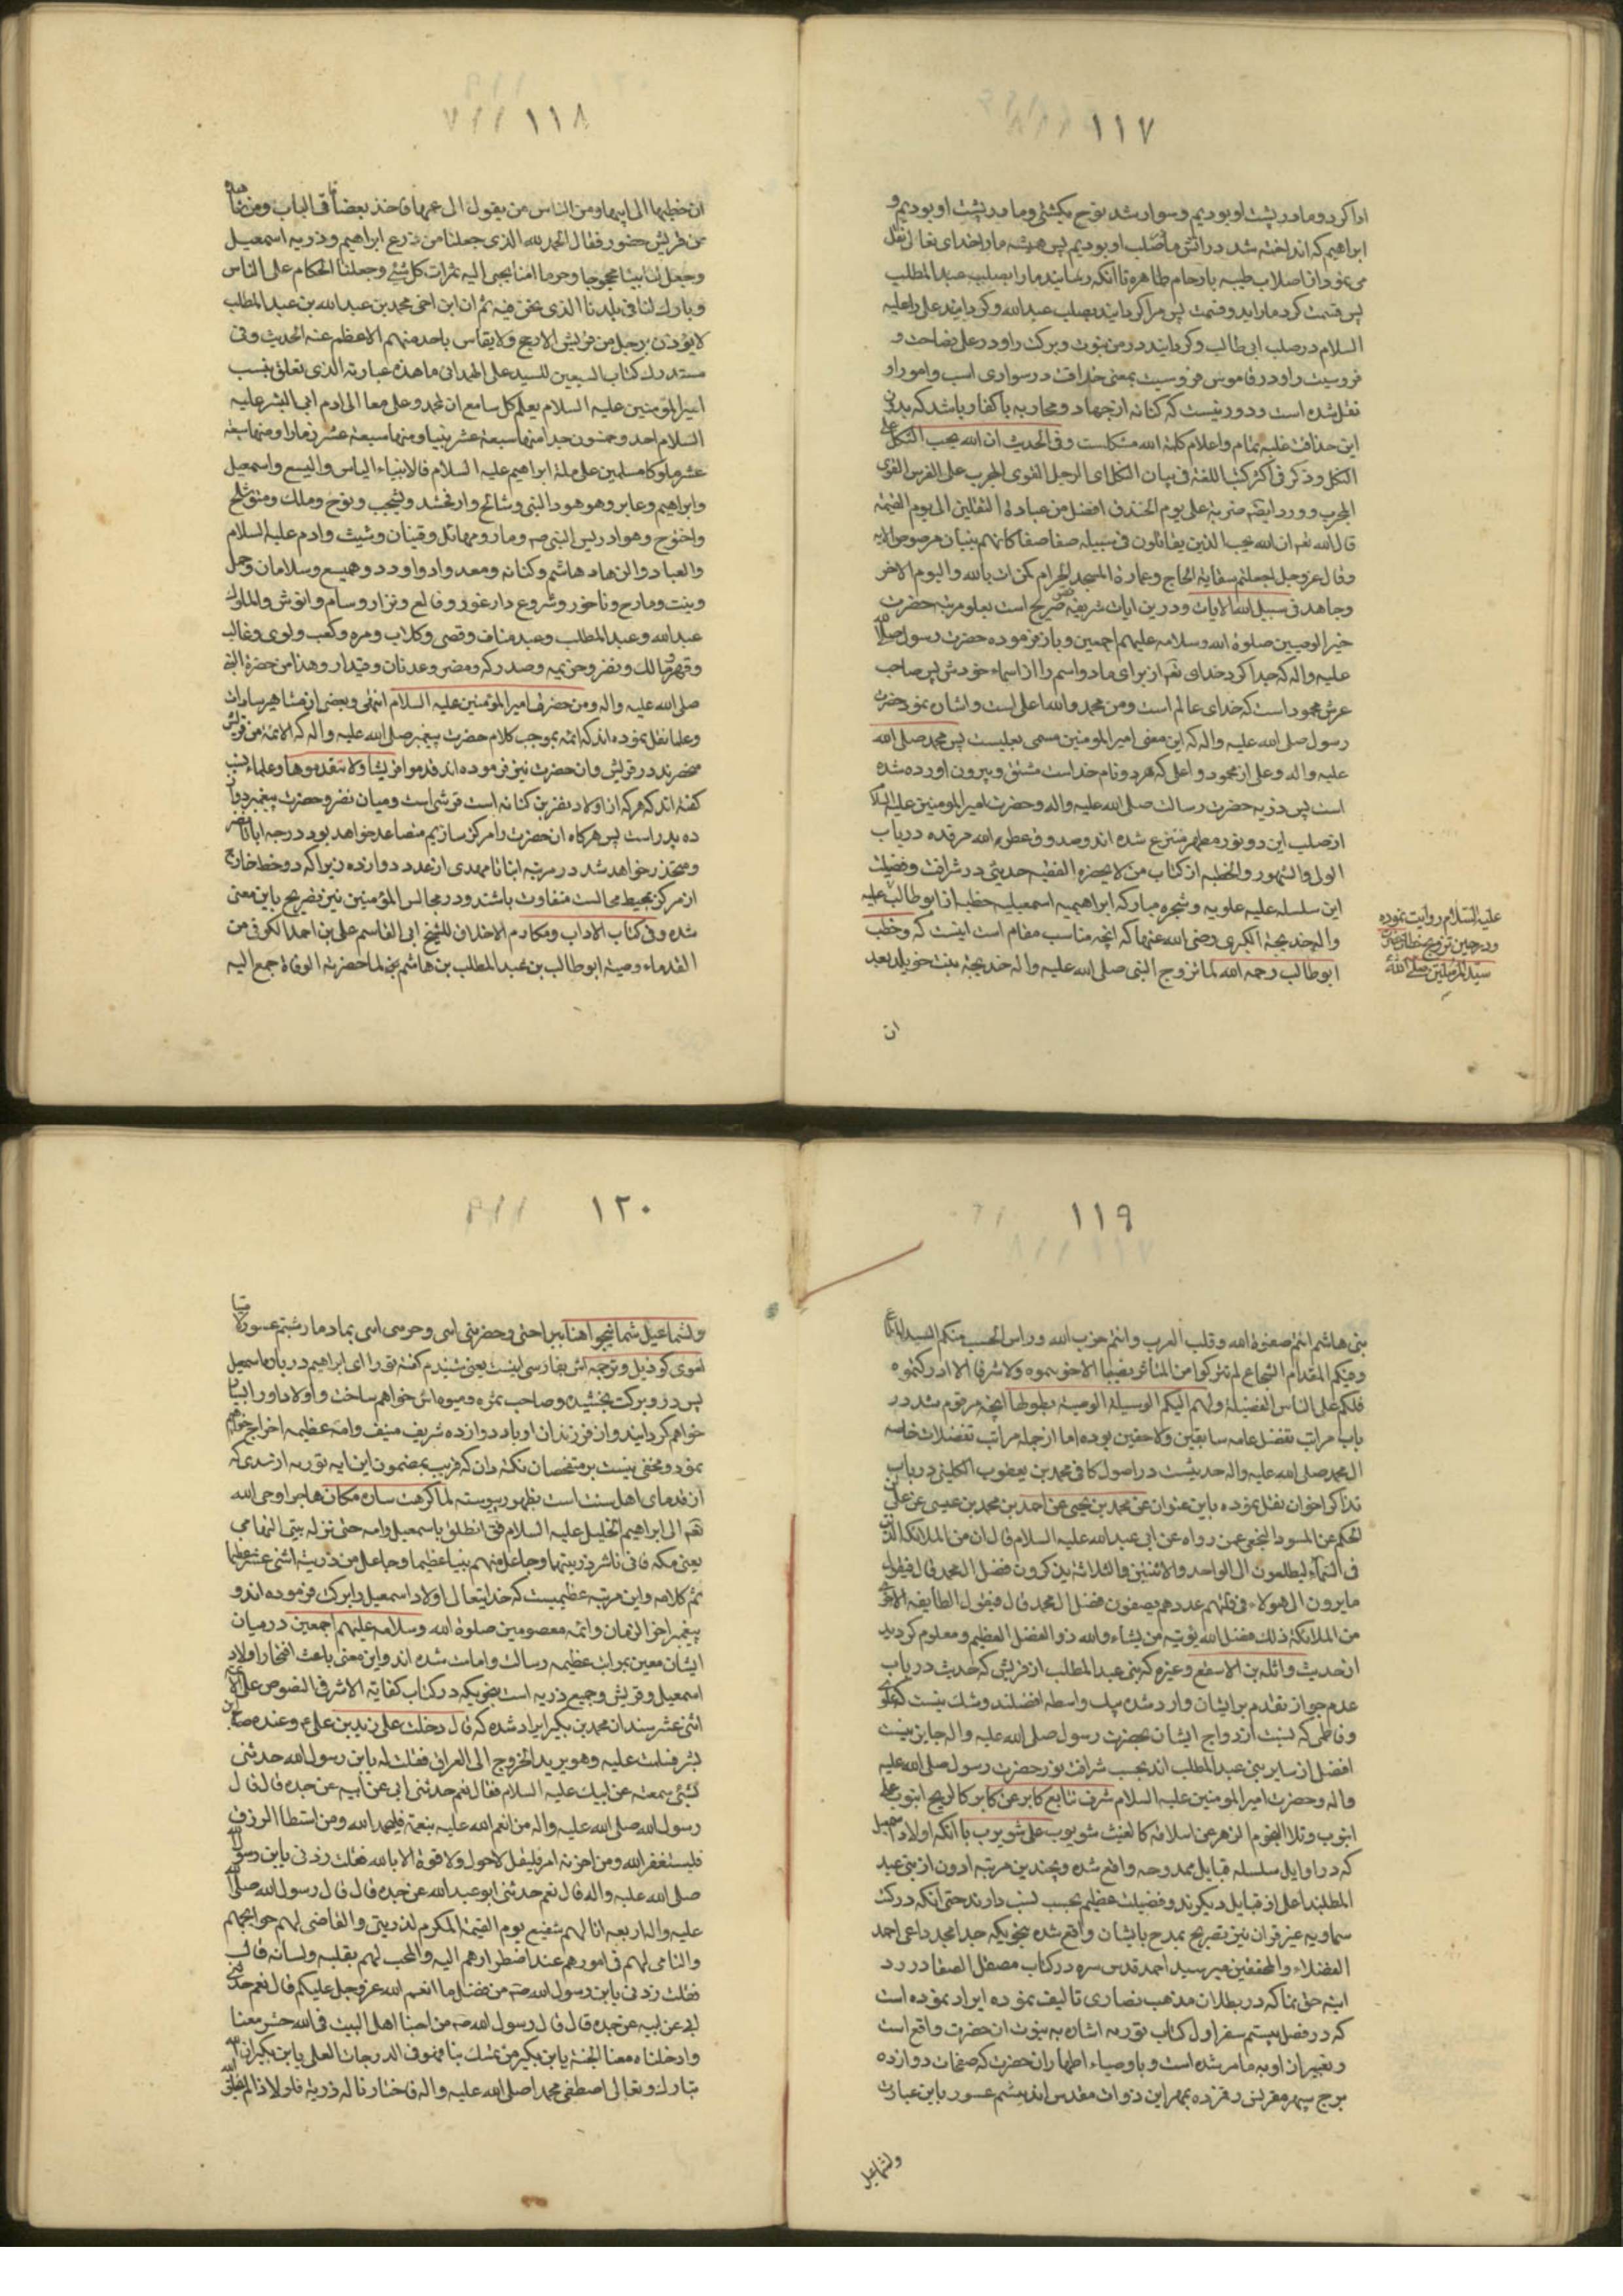 ١١٧
ادا کرد و ما در پشت او بودیم و سوار شد نوح بکشتی و ما در پشت او بودیم و
ابراهیم که انداخته شد در اتش ما صلب او بودیم پس همیشه ما را خدای تعالی نقل
می نمود از اصلاب طیبه بارحام طاهره تا آنکه رسانید ما را بصلب عبد المطلب
پس قسمت کرد ما را بدو قسمت پس مرا کردانید بصلب عبد الله و کردانید علی را علیه
السلام در صلب ابی طالب و کردانید در من نبوت و برکت را و در علی فصاحت و
فروسیت را و در قاموس فروسیت بمعنی حذاقت در سواری اسب و امور او
نقل شده است و دور نیست که کنانه از جهاد و محاربه با کفار باشد که بدون
این حذاقت غلبه تمام و اعلام کلمة الله مشکلست و فی الحدیث ان الله یحب النکل علی
النکل و ذکر فی اکثر کتب اللغة فی بیان النکل ای الرجل القوی المجرب علی الفرس القوی
المجرب و ورد ایضا ضربة علی یوم الخندق افضل من عبادة الثقلین الی یوم القیمة
قال الله تعم ان الله یحب الذین یقاتلون فی سبیله صفا صفا کانهم بنیان مرصوص الایه
وقال عز وجل اجعلتم سقایة الحاج وعمارة المسجد الحرام کمن امن بالله والیوم الاخر
وجاهد فی سبیل الله الایات و درین ایات شریفه صریح است بعلو مرتبه حضرت
خیر الوصیین صلوة الله وسلامه علیهم اجمعین و باز فرموده حضرت رسول صلی الله
علیه واله که جدا کرد خدای تعم از برای ما دو اسم را از اسماء خودش پس صاحب
عرش محمود است که خدای عالم است ومن محمد والله اعلی است و اشان نمود حضرت
رسول صلی الله علیه واله که این معنی امیر المومنین مسمی بعلیست پس محمد صلی الله
علیه واله وعلی از محمود و اعلی که هر دو نام خداست مشتق و بیرون اورده شده
است پس ذریه حضرت رسالت صلی الله علیه واله وحضرت امیر المومنین علیه السلام
از صلب این دو نور مطهر منتزع شده اند و صدوق عطر الله مرقده در باب
الولی والشهور والخطبه از کتاب من لا یحضره الفقیه حدیثی در شرافت و فضیلت
این سلسله علیه علویه و شجره مبارکه ابراهیمیه اسمعیلیه خطبه از ابو طالب علیه
واله خدیجة الکبری رضی الله عنها که آنچه مناسب مقام است اینست که وخطب
ابوطالب رحمه الله لما تزوج النبی صلی الله علیه واله خدیجة بنت خویلد بعد
علیه السلام روایت نموده
ودر حین تزویج
سید المرسلین صلی الله
ان
١١٨
ان خطبها الی ابیها ومن الناس من یقول الی عمها فاخذ بعضادتی الباب ومن شاهده
من قریش حضور فقال الحمد لله الذی جعلنا من زرع ابراهیم وذریه اسمعیل
وجعل لنا بیتا محجوجا وحرما امنا یجبی الیه ثمرات کل شئ وجعلنا الحکام علی الناس
وبارک لنا فی بلدنا الذی نحن فیه ثم ان ابن اخی محمد بن عبد الله بن عبد المطلب
لا یوزن برجل من قریش الا رجح ولا یقاس باحد منهم الا عظم عنه الحدیث وفی
مستدرک کتاب السبعین للسید علی الهمدانی ما هذه عبارته الذی تعلق بنسب
امیر المؤمنین علیه السلام یعلم کل سامع ان لمحمد وعلی معا الی ادم ابی البشر علیه
السلام احد وخمسون جدا منها سبعة عشر نبیا ومنها سبعة عشر زمارا ومنها سبعة
عشر ملوکا مسلمین علی ملة ابراهیم علیه السلام فالانبیاء الیاس والیسع واسمعیل
وابراهیم وعابر وهو هود النبی وشالخ وارفخشد ویشجب ونوح وملک ومتوشلخ
واخنوخ وهو ادریس النبی صه ومارد ومهائل وقینان وشیث وادم علیه السلام
والعباد والزهاد هاشم وکنانه ومعد وادد واود وهمیسع وسلامان وحمل
وبنت ومارح وناخور وشروع دارغور وفالع ونزار وسام وانوش والملوک
عبد الله وعبد المطلب وعبد مناف وقصی وکلاب ومره وکعب ولوی وغالب
وفهر ومالک ونضر وخزیمه وصدرکه ومضر وعدنان وقیدار وهذا من حضرة النبی
صلی الله علیه واله ومن حضرت امیر المؤمنین علیه السلام انتهی وبعضی از مشاهیر سادات
وعلما نقل نموده اند که ائمه بموجب کلام حضرت پیغمبر صلی الله علیه واله که الائمة من قریش
منحصرند در قریش وان حضرت نیز فرموده اند قدموا قریشا ولا تتقدموها وعلماء نسب
کفته اند که هر که از اولاد نضر بن کنانه است قرشی است ومیان نضر وحضرت پیغمبر دوازده
ده پدر است پس هرکاه ان حضرت را مرکز سازیم متصاعد خواهد بود در درجه ابا تا نضر
ومنحدر خواهد شد در مرتبه ابنا تا مهدی از عدد دوازده زیرا که دو خط خارج
از مرکز بمحیط محالست متفاوت باشند ودر مجالس المؤمنین نیز تصریح باین معنی
شده وفی کتاب الاداب ومکارم الاخلاق للشیخ ابی القاسم علی بن احمد الکوفی من
القدماء وصیة ابو طالب بن عبد المطلب بن هاشم بن لما حضرته الوفاة جمع الیه
١١٩
بنی هاشم انتم صفوة الله وقلب العرب وانتم حزب الله وراس الحسب منکم السید المطاع
وفیکم المقدام الشجاع لم تترکوا من المئاثر نصیبا الا حویتموه ولا شرفا الا ادرکتموه
فلکم علی الناس الفضیلة ولهم الیکم الوسیلة الوصیة بطولها آنچه مرقوم شد در
باب مراتب تفضل عامه سابقین ولاحقین بوده اما از جمله مراتب تفضلات خاصه
ال محمد صلی الله علیه واله حدیثیست در اصول کافی محمد بن یعقوب الکلینی در باب
تذاکر اخوان نقل نموده باین عنوان عن محمد بن یحیی عن احمد بن محمد بن عیسی عن علی بن
الحکم عن المستورد النخعی عمن رواه عن ابی عبد الله علیه السلام قال ان من الملائکة الذین
فی السماء لیطلعون الی الواحد والاثنین والثلاثة یذکرون فضل ال محمد قال فیقول
ما یرون الی هولاء فی قلتهم عددهم یصفون فضل ال محمد قال فیقول الطایفه الاخری
من الملائکة ذلک فضل الله یؤتیه من یشاء والله ذو الفضل العظیم ومعلوم کردید
از حدیث واثلة بن الاسقع وغیره که بنی عبد المطلب از قریش که حدیث در باب
عدم جواز تقدم بر ایشان وارد شده بیک واسطه افضلند وشک نیست که علوی
وفاطمی که نسبت ازدواج ایشان بحضرت رسول صلی الله علیه واله جایز نیست
افضل از سایر بنی عبد المطلب اند بحسب شرافت نور حضرت رسول صلی الله علیه
واله وحضرت امیر المومنین علیه السلام شرف تتابع کابر عن کابر کالریح انبوب علی
انبوب وتلالأ النجوم الزهر عن اسلافه کالغیث شوبوب علی شوبوب با انکه اولاد اسمعیل
که در اوایل سلسله قبایل ممدوحه واقع شده وبچندین مرتبه ادون از بنی عبد
المطلبند اعلی از قبایل دیکرند وفضیلت عظیم بحسب نسب دارند حتی انکه در کتب
سماویه غیر قران نیز تصریح بمدح بایشان واقع شده بنحویکه جد امجد داعی احمد
الفضلاء والمحققین میر سید احمد قدس سره در کتاب مصقل الصفا در رد
اینه حق نما که در بطلان مذهب نصاری تالیف نموده ایراد نموده است
که در فصل بیستم سفر اول کتاب توریه اشاره به نبوت ان حضرت واقع است
وتعبیر از او به مامر شده است وباوصیاء اطهار ان حضرت که صفحات دوازده
برج سپهر مقرنس رقم زده بمهر این ذوات مقدس اند بشنیم عسور باین عبارت
ولشماعیل
١٢٠
ولشماعیل شماتیخو اهنا بیراختی وحضربتی اسی وحربتی اسی بماد مادر شنیم عسور
اموی کوذیل وترجمه اش بفارسی اینست یعنی شنیدم کفته تو را ای ابراهیم در باره اسمعیل
پس درو برکت بخشیده وصاحب ثمره ومیوه اش خواهم ساخت واولاد او را بسیار
خواهم کردانید واز فرزندان او باد دوازده شریف منیف وامة عظیمه اخراج خواهم
نمود ومخفی نیست بر متفحصان نکته دان که قریب بمضمون این ایه توریه از سدی که
از قدمای اهل سنت است بظهور پیوسته لما کرهت ساره مکان هاجر اوحی الله
تعم الی ابراهیم الخلیل علیه السلام فقال انطلق باسمعیل وامه حتی تنزله بیتی التهامی
یعنی مکه فانی ناشر ذریتهما وجاعل منهم نبیا عظیما وجاعل من ذریته اثنی عشر عظیما
تم کلامه واین مرتبه عظیمیست که خدایتعالی اولاد اسمعیل را برکت فرموده اند و
پیغمبر اخر الزمان وائمه معصومین صلوة الله وسلامه علیهم اجمعین در میان
ایشان معین بمراتب عظیمه رسالت وامامت شده اند واین معنی باعث افتخار اولاد
اسمعیل وقریش وجمیع ذریه است بنحویکه در کتاب کفایة الاثر فی النصوص علی الائمة
اثنی عشر بسند از محمد بن بکیر ایراد شده که قال دخلت علی زید بن علی ع وعنده صالح بن
بشر فسلمت علیه وهو یرید الخروج الی العراق فقلت له یا بن رسول الله حدثنی
بشئی سمعته عن ابیک علیه السلام فقال نعم حدثنی ابی عن ابیه عن جده قال قال
رسول الله صلی الله علیه واله من انعم الله علیه بنعمة فلیحمد الله ومن استبطا الرزق
فلیستغفر الله ومن احزنه امر فلیقل لا حول ولا قوة الا بالله فقلت زدنی یا بن رسول الله
صلی الله علیه واله قال نعم حدثنی ابو عبد الله عن جده قال قال رسول الله صلی الله
علیه واله اربعة انا لهم شفیع یوم القیمة المکرم لذریتی والقاضی لهم حوائجهم
والساعی لهم فی امورهم عند اضطرارهم الیه والمحب لهم بقلبه ولسانه قال
فقلت زدنی یا بن رسول الله صه من فضل ما انعم الله عز وجل علیکم قال نعم حدثنی
ابی عن ابیه عن جده قال قال رسول الله صه من احبنا اهل البیت فی الله حشر معنا
وادخلناه معنا الجنة یا بن بکیر من تمسک بنا فهو فی الدرجات العلی یا بن بکیر ان الله
تبارک وتعالی اصطفی محمدا صلی الله علیه واله واختارنا له ذریة فلولانا لم یخلق الله